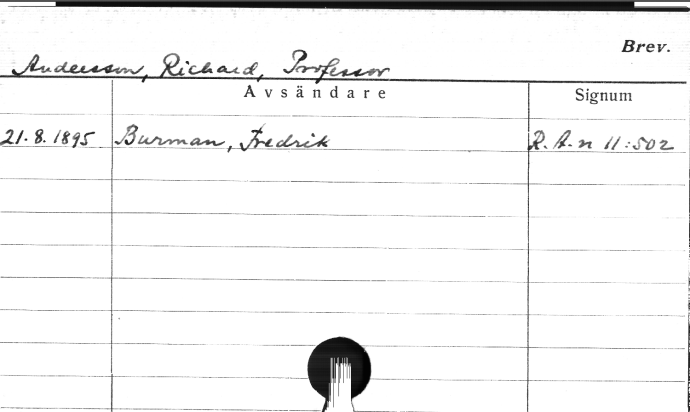 Brev.
Andersson, Richard, Professor
Avsändare Signum
21.8.1895 Burman, Fredrik R.A.n 11:502